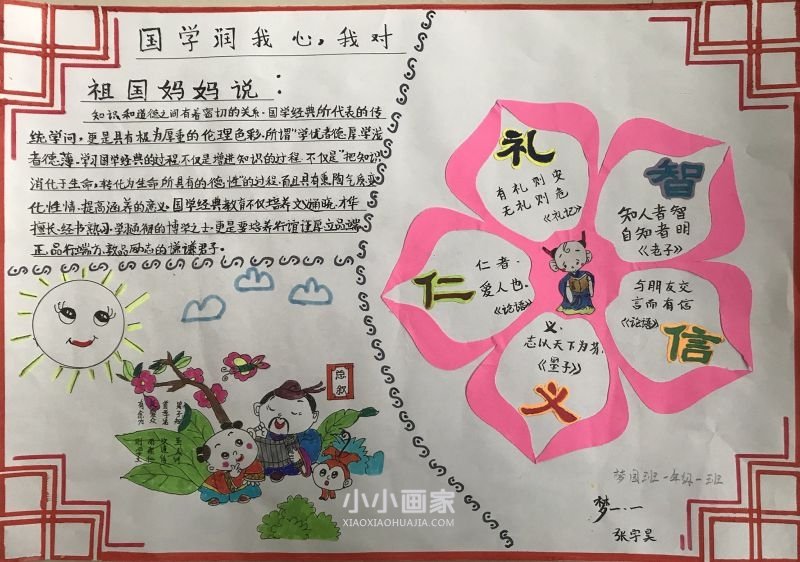 国学润我心，我对
祖国妈妈说：
知识和道德之间有着密切的关系。国学经典所代表的传
统学问，更是具有极为厚重的伦理色彩。所谓“学优者德厚，学浅
者德薄。学习国学经典的过程不仅是增进知识的过程，不仅是“把知识
消化于生命，转化为生命所具有的德性”的过程。而且具有熏陶气质、变
化性情、提高涵养的意义。国学经典教育不仅培养文义娴晓、才华
擅长、经书熟习、学随彻的博学之士，更是要培养行谊谨厚、立品端
正、品行端方、敦品励志的谦谦君子。
礼
有礼则安
无礼则危
《礼记》
智
知人者智
自知者明
《老子》
仁
仁者，
爱人也。
《论语》
与朋友交
言而有信
《论语》
信
义，
志以天下为芬，
《墨子》
义
总叙
小小画家
XIAOXIAOHUAJIA.COM
梦园班一年级一班
梦一.一
张宇昊